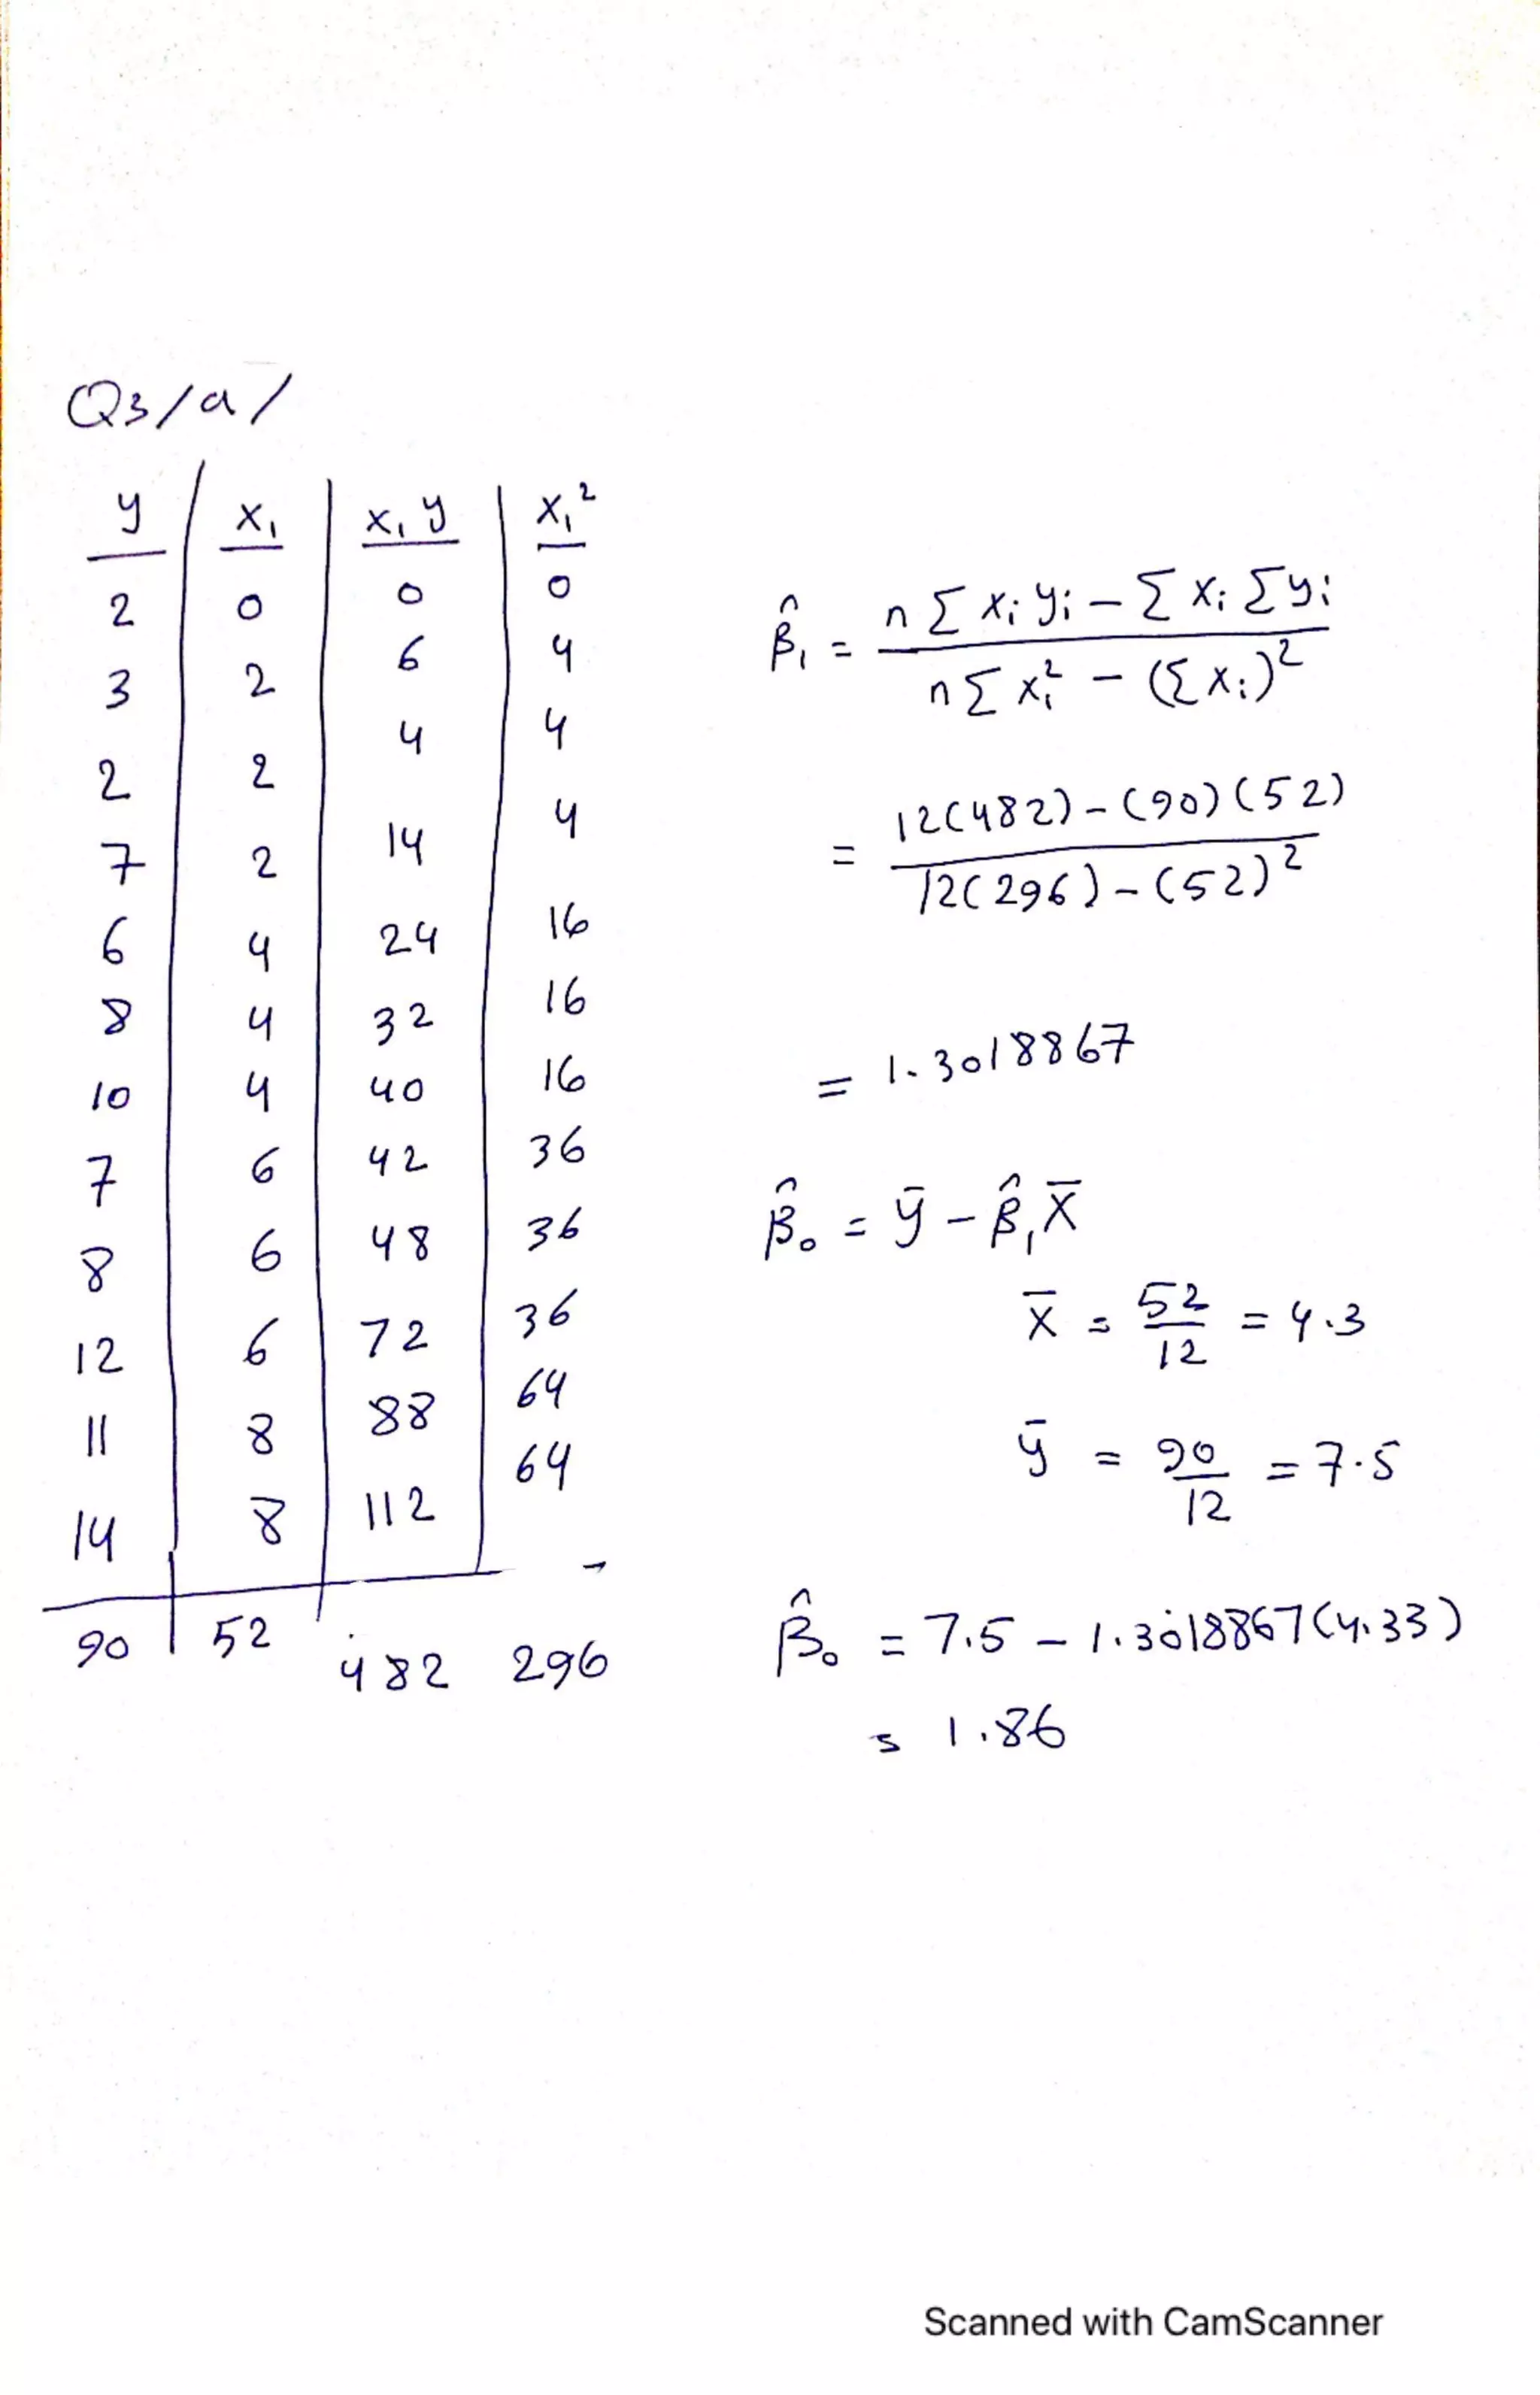 Q3/a/
y | x₁ | x₁y | x₁²
2 | 0 | 0 | 0
3 | 2 | 6 | 4
2 | 2 | 4 | 4
7 | 2 | 14 | 4
6 | 4 | 24 | 16
8 | 4 | 32 | 16
10 | 4 | 40 | 16
7 | 6 | 42 | 36
8 | 6 | 48 | 36
12 | 6 | 72 | 36
11 | 8 | 88 | 64
14 | 8 | 112 | 64
90 | 52 | 482 | 296
β̂₁ = (n Σ xᵢ yᵢ − Σ xᵢ Σ yᵢ) / (n Σ xᵢ² − (Σ xᵢ)²)
= (12(482) − (90)(52)) / (12(296) − (52)²)
= 1.3018867
β̂₀ = ȳ − β̂₁ x̄
x̄ = 52/12 = 4.3
ȳ = 90/12 = 7.5
β̂₀ = 7.5 − 1.3018867(4.33)
= 1.86
Scanned with CamScanner